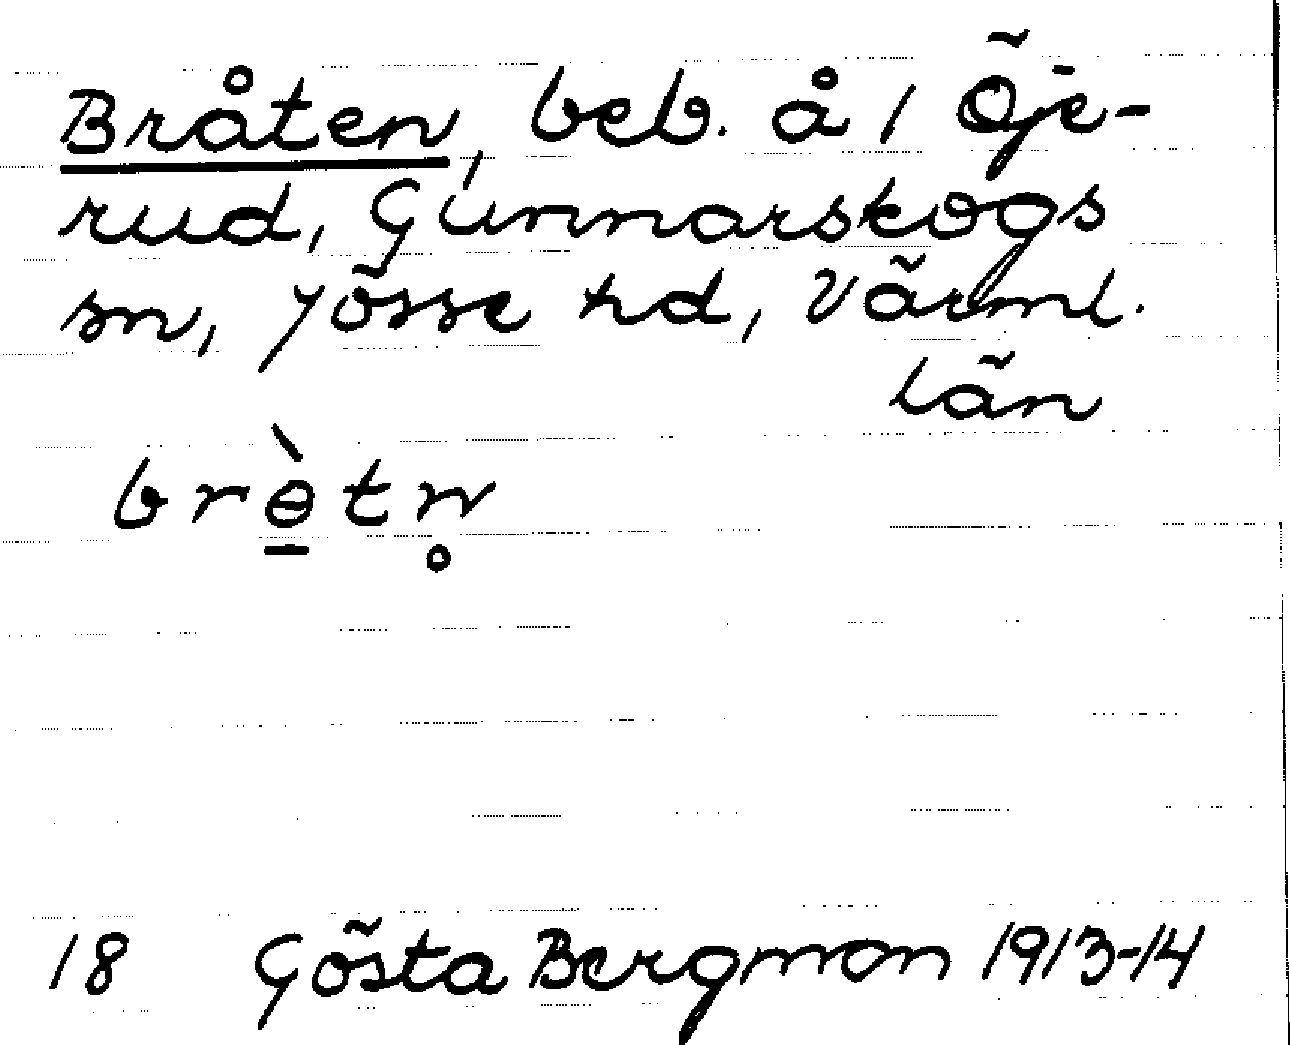 Bråten, beb. å 1 Öje-
rud, Gunnarskogs
sn, Jösse hd, Värml.
län
brɵ̱̀tn̥
18 Gösta Bergman 1913-14